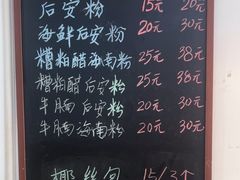 后安粉 15元 20元
海鲜后安粉 20元 30元
糟粕醋海南粉 25元 38元
糟粕醋后安粉 25元 38元
牛腩后安粉 20元 30元
牛腩海南粉 20元 30元
椰丝包 15/3个